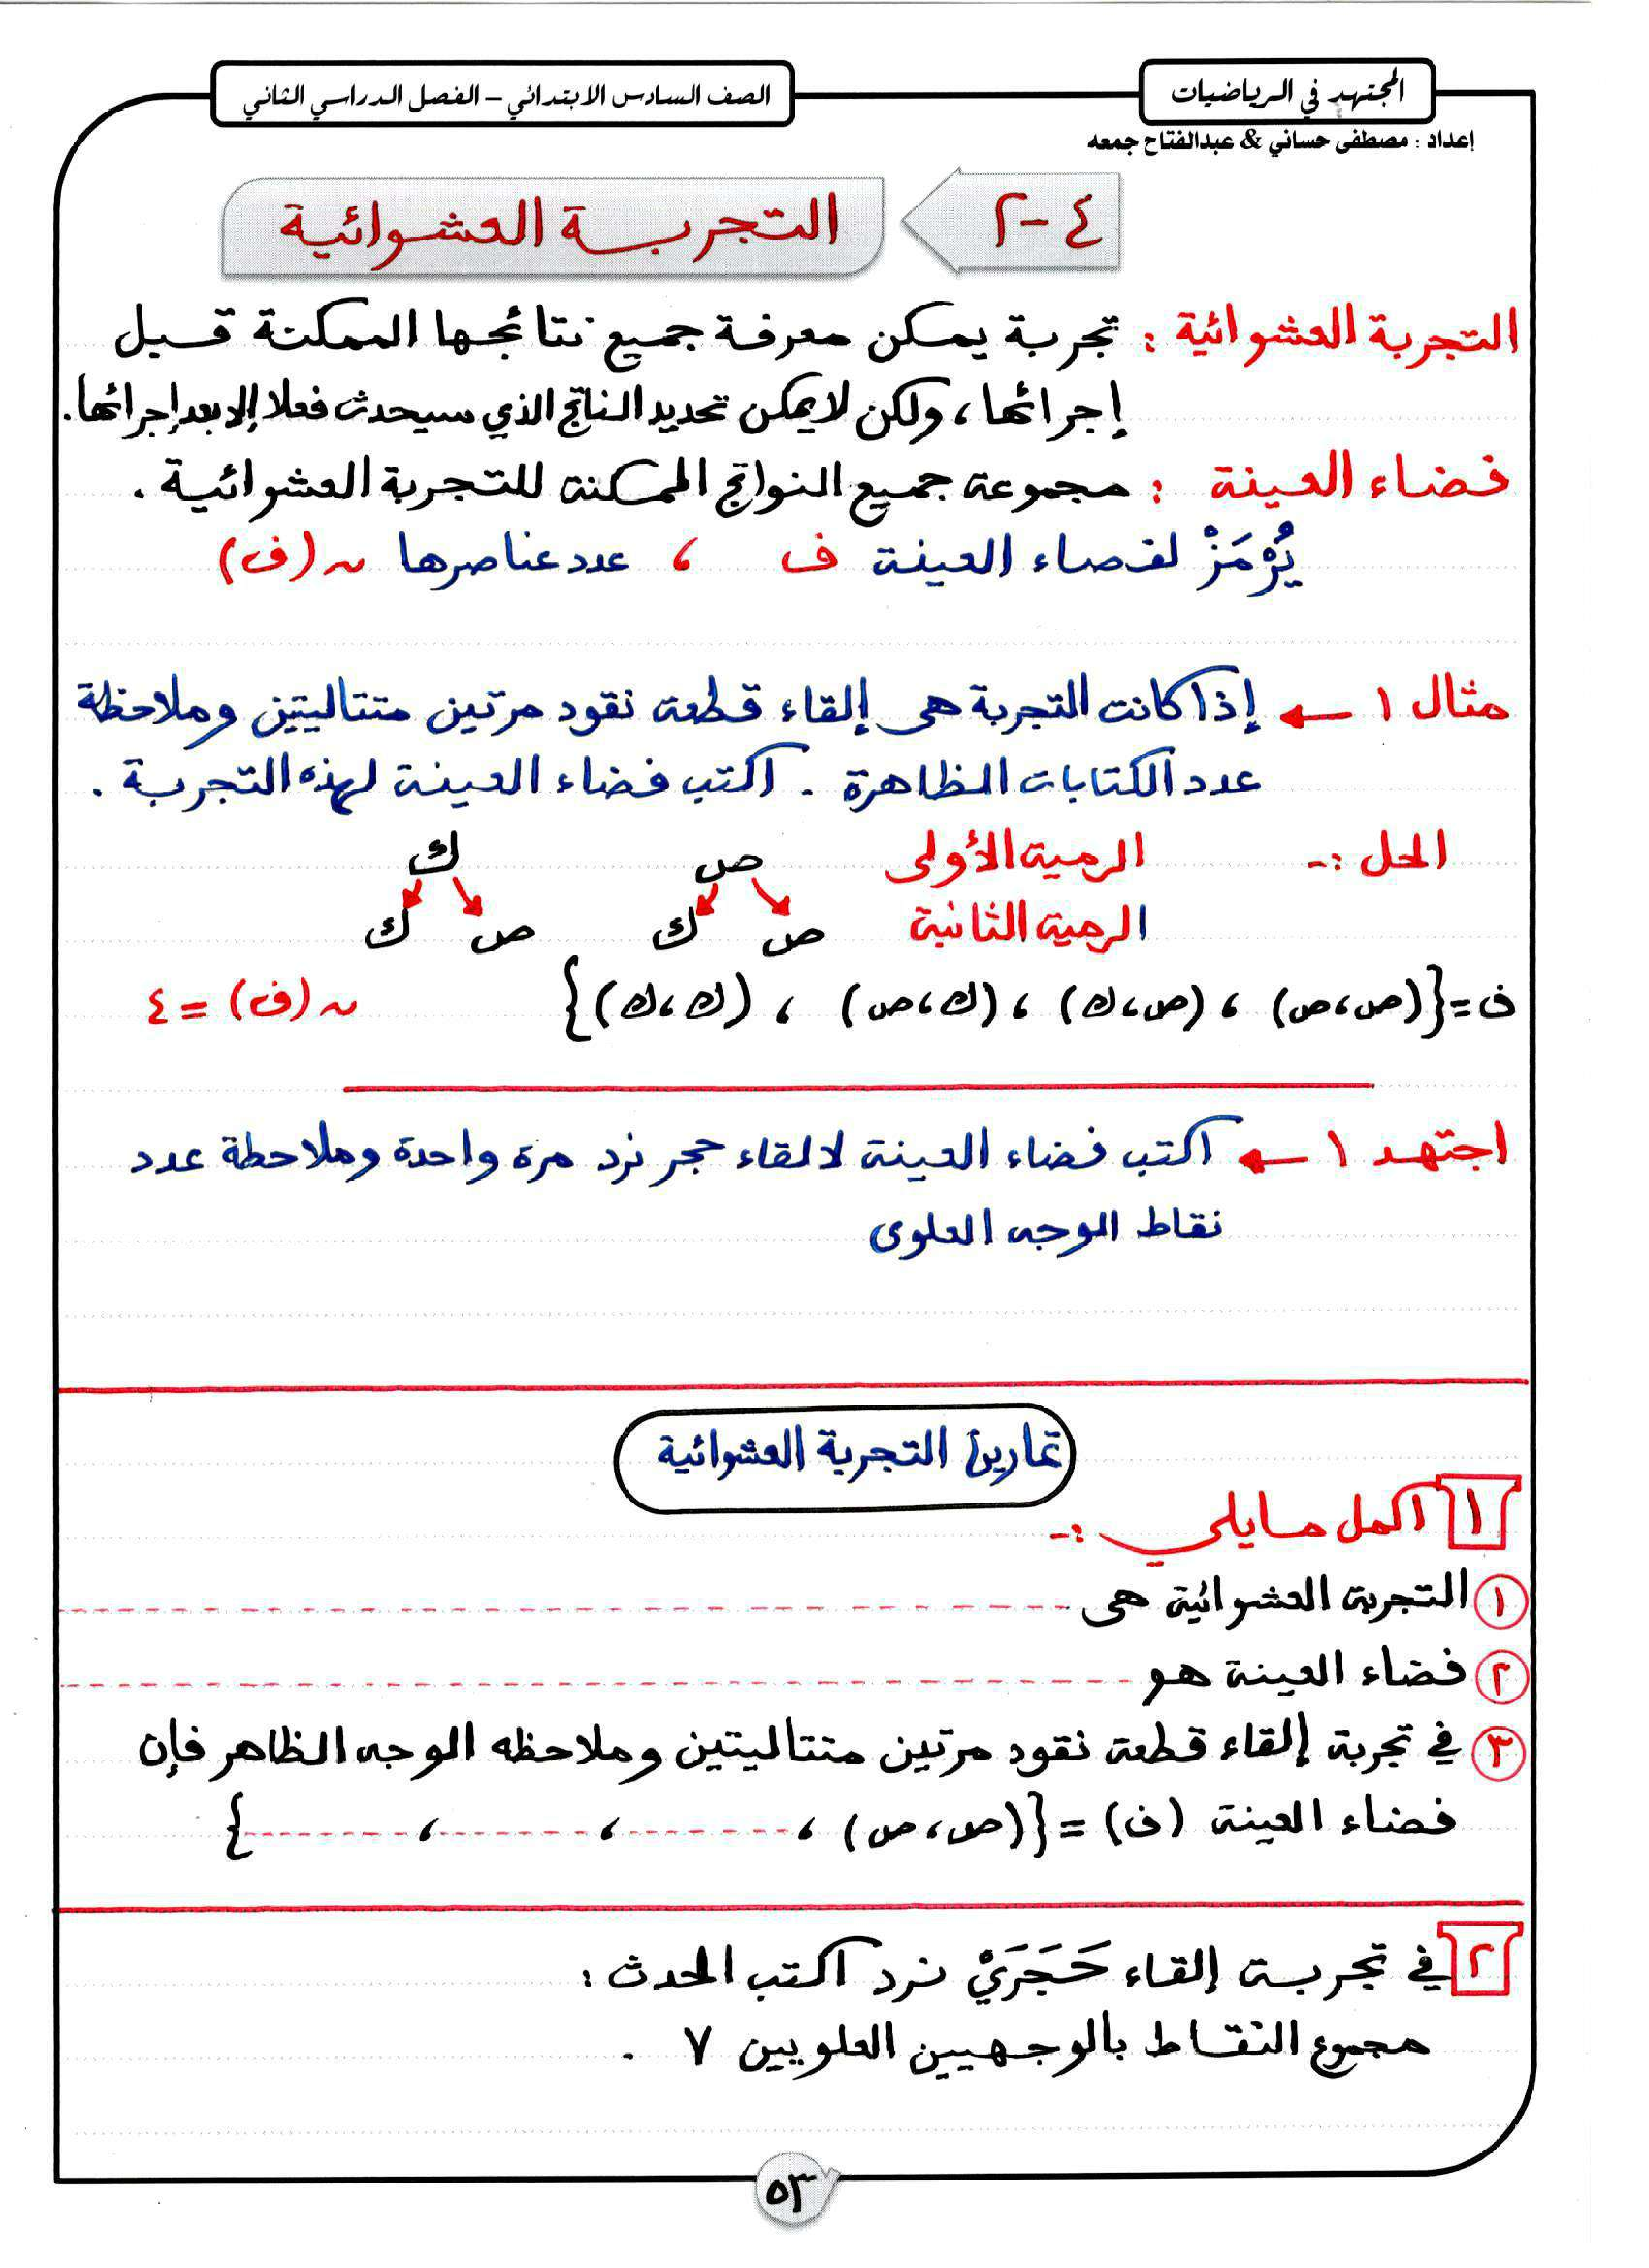 المجتهد في الرياضيات
الصف السادس الابتدائي – الفصل الدراسي الثاني
إعداد : مصطفى حساني & عبدالفتاح جمعه
٤-٢ التجربة العشوائية
التجربة العشوائية : تجربة يمكن معرفة جميع نتائجها الممكنة قبل
إجرائها ، ولكن لا يمكن تحديد الناتج الذي سيحدث فعلا إلا بعد إجرائها .
فضاء العينة : مجموعة جميع النواتج الممكنة للتجربة العشوائية .
يُرْمَزْ لفضاء العينة ف ، عدد عناصرها ن (ف)
مثال ١ ← إذا كانت التجربة هى إلقاء قطعة نقود مرتين متتاليتين وملاحظة
عدد الكتابات الظاهرة . اكتب فضاء العينة لهذه التجربة .
الحل :- الرمية الأولى ص ك
الرمية الثانية ص ك ص ك
ف = {(ص،ص) ، (ص،ك) ، (ك،ص) ، (ك،ك)} ن (ف) = ٤
اجتهد ١ ← اكتب فضاء العينة لالقاء حجر نرد مرة واحدة وملاحطة عدد
نقاط الوجه العلوى
تمارين التجربة العشوائية
١ اكمل مايلي :-
١ التجربة العشوائية هى
٢ فضاء العينة هو
٣ في تجربة إلقاء قطعة نقود مرتين متتاليتين وملاحظه الوجه الظاهر فإن
فضاء العينة (ف) = {(ص،ص) ، ------- ، ------- ، -------}
٢ في تجربة إلقاء حَجَرَيْ نرد اكتب الحدث :
مجموع النقاط بالوجهيين العلويين ٧ .
٥٣